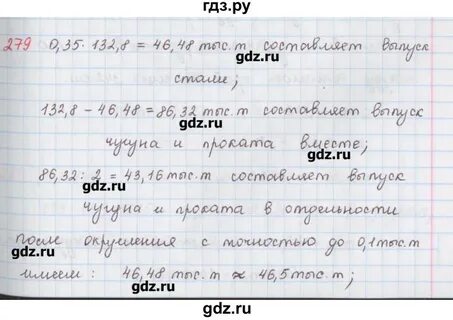 гдз.ру
279 0,35 · 132,8 = 46,48 тыс.т составляет выпуск
gdz.ru gdz.ru
стали;
132,8 - 46,48 = 86,32 тыс.т составляет выпуск
gdz.ru
чугуна и проката вместе;
gdz.ru
86,32 : 2 = 43,16 тыс.т составляет выпуск
gdz.ru
чугуна и проката в отдельности
gdz.ru
после округления с точностью до 0,1 тыс.т
gdz.ru gdz.ru
имеем: 46,48 тыс.т ≈ 46,5 тыс.т;
gdz.ru